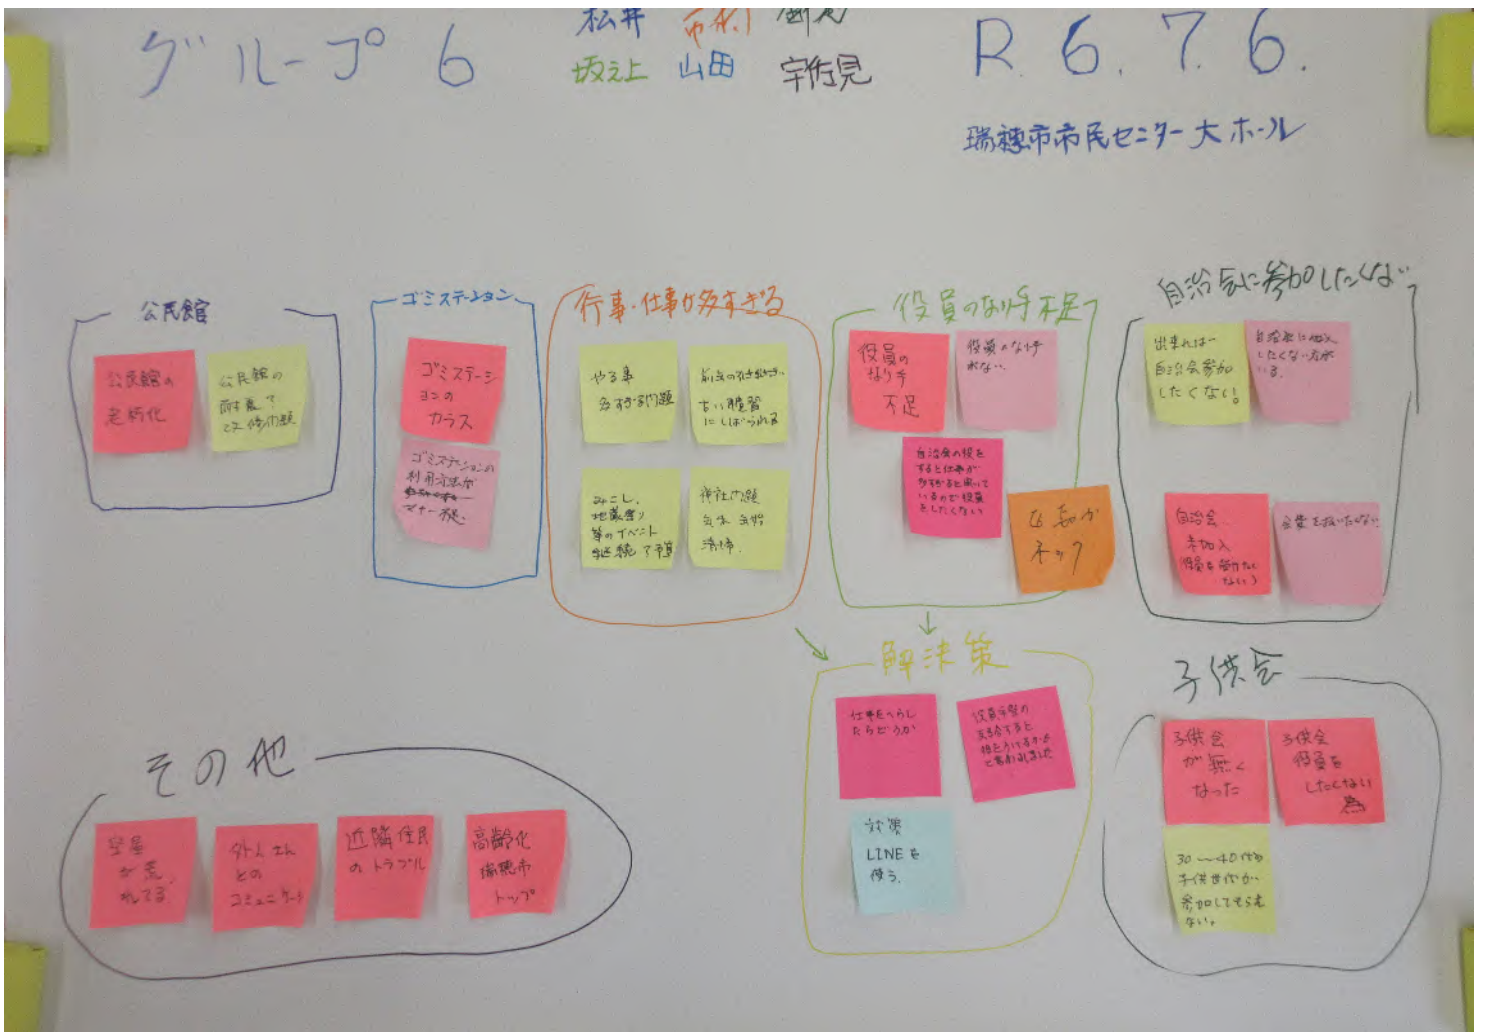 グループ 6
松井
坂之上 山田 宇佐見
R. 6. 7. 6.
瑞穂市市民センター大ホール
公民館
公民館の
老朽化
公民館の
耐震で
改修問題
ゴミステーション
ゴミステーシ
ョンの
カラス
ゴミステーションの
利用方法が
マナー
行事・仕事が多すぎる
やる事
多すぎ問題
古い慣習
にしばられる
みこし、
地蔵祭り
等のイベント
継続
神社問題
年末 年始
清掃.
役員のなり手不足
役員の
なり手
不足
役員のなり手
がない.
自治会の役を
すると仕事が
多すぎると聞いて
いるので役員
をしたくない
ネック
自治会に参加したくない
出来れば
自治会参加
したくない。
自治会に加入
したくない方が
いる.
自治会
未加入
会費を払いたくない
解決策
仕事をへらし
たらどうか
役員手当の
対策
LINEを
使う.
子供会
子供会
が無く
なった
子供会
役員を
したくない
為
30〜40代の
子供世代が
参加してもらえ
ない。
その他
空屋
が荒
れてる.
外人さん
との
コミュニケーション
近隣住民
のトラブル
高齢化
瑞穂市
トップ